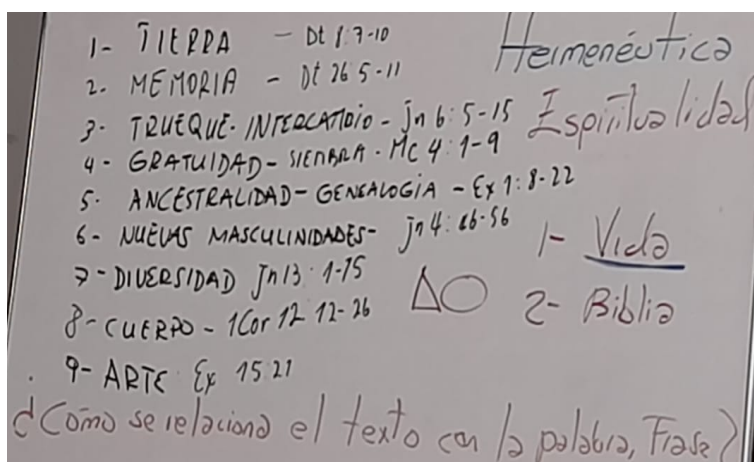 1- TIERRA - Dt 8 7-10
2. MEMORIA - Dt 26 5-11
3- TRUEQUE- INTERCAMBIO - Jn 6: 5-15
4- GRATUIDAD - SIEMBRA - Mc 4: 1-9
5. ANCESTRALIDAD - GENEALOGIA - Ex 1: 8-22
6- NUEVAS MASCULINIDADES - Jn 4: 46-56
7- DIVERSIDAD Jn 13: 1-15
8- CUERPO - 1Cor 12 12-26
9- ARTE Ex 15 21
Hermenéutica
Espiritualidad
1- Vida
2- Biblia
¿Cómo se relaciona el texto con la palabra, Frase?